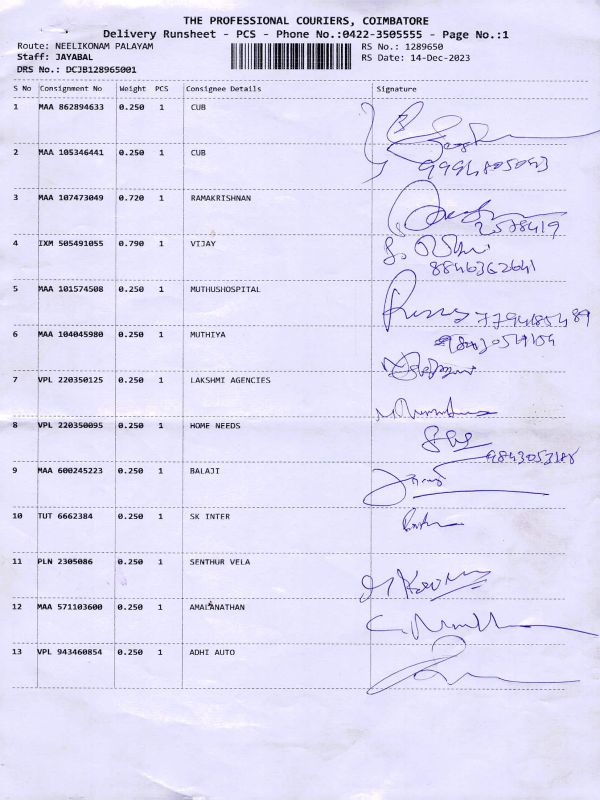 THE PROFESSIONAL COURIERS, COIMBATORE
Delivery Runsheet - PCS - Phone No.:0422-3505555 - Page No.:1
Route: NEELIKONAM PALAYAM RS No.: 1289650
Staff: JAYABAL RS Date: 14-Dec-2023
DRS No.: DCJB128965001
S No Consignment No Weight PCS Consignee Details Signature
1 MAA 862894633 0.250 1 CUB
2 MAA 105346441 0.250 1 CUB
3 MAA 107473049 0.720 1 RAMAKRISHNAN
2578419
4 IXM 505491055 0.790 1 VIJAY
8846362641
5 MAA 101574508 0.250 1 MUTHUSHOSPITAL
6 MAA 104045980 0.250 1 MUTHIYA
7 VPL 220350125 0.250 1 LAKSHMI AGENCIES
8 VPL 220350095 0.250 1 HOME NEEDS
9843053186
9 MAA 600245223 0.250 1 BALAJI
10 TUT 6662384 0.250 1 SK INTER
11 PLN 2305086 0.250 1 SENTHUR VELA
12 MAA 571103600 0.250 1 AMALANATHAN
13 VPL 943460854 0.250 1 ADHI AUTO